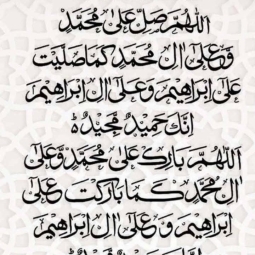 اللهم صل على محمد
وعلى آل محمد كما صليت
على إبراهيم وعلى آل إبراهيم
إنك حميد مجيد ه
اللهم بارك على محمد وعلى
آل محمد كما باركت على
إبراهيم وعلى آل إبراهيم